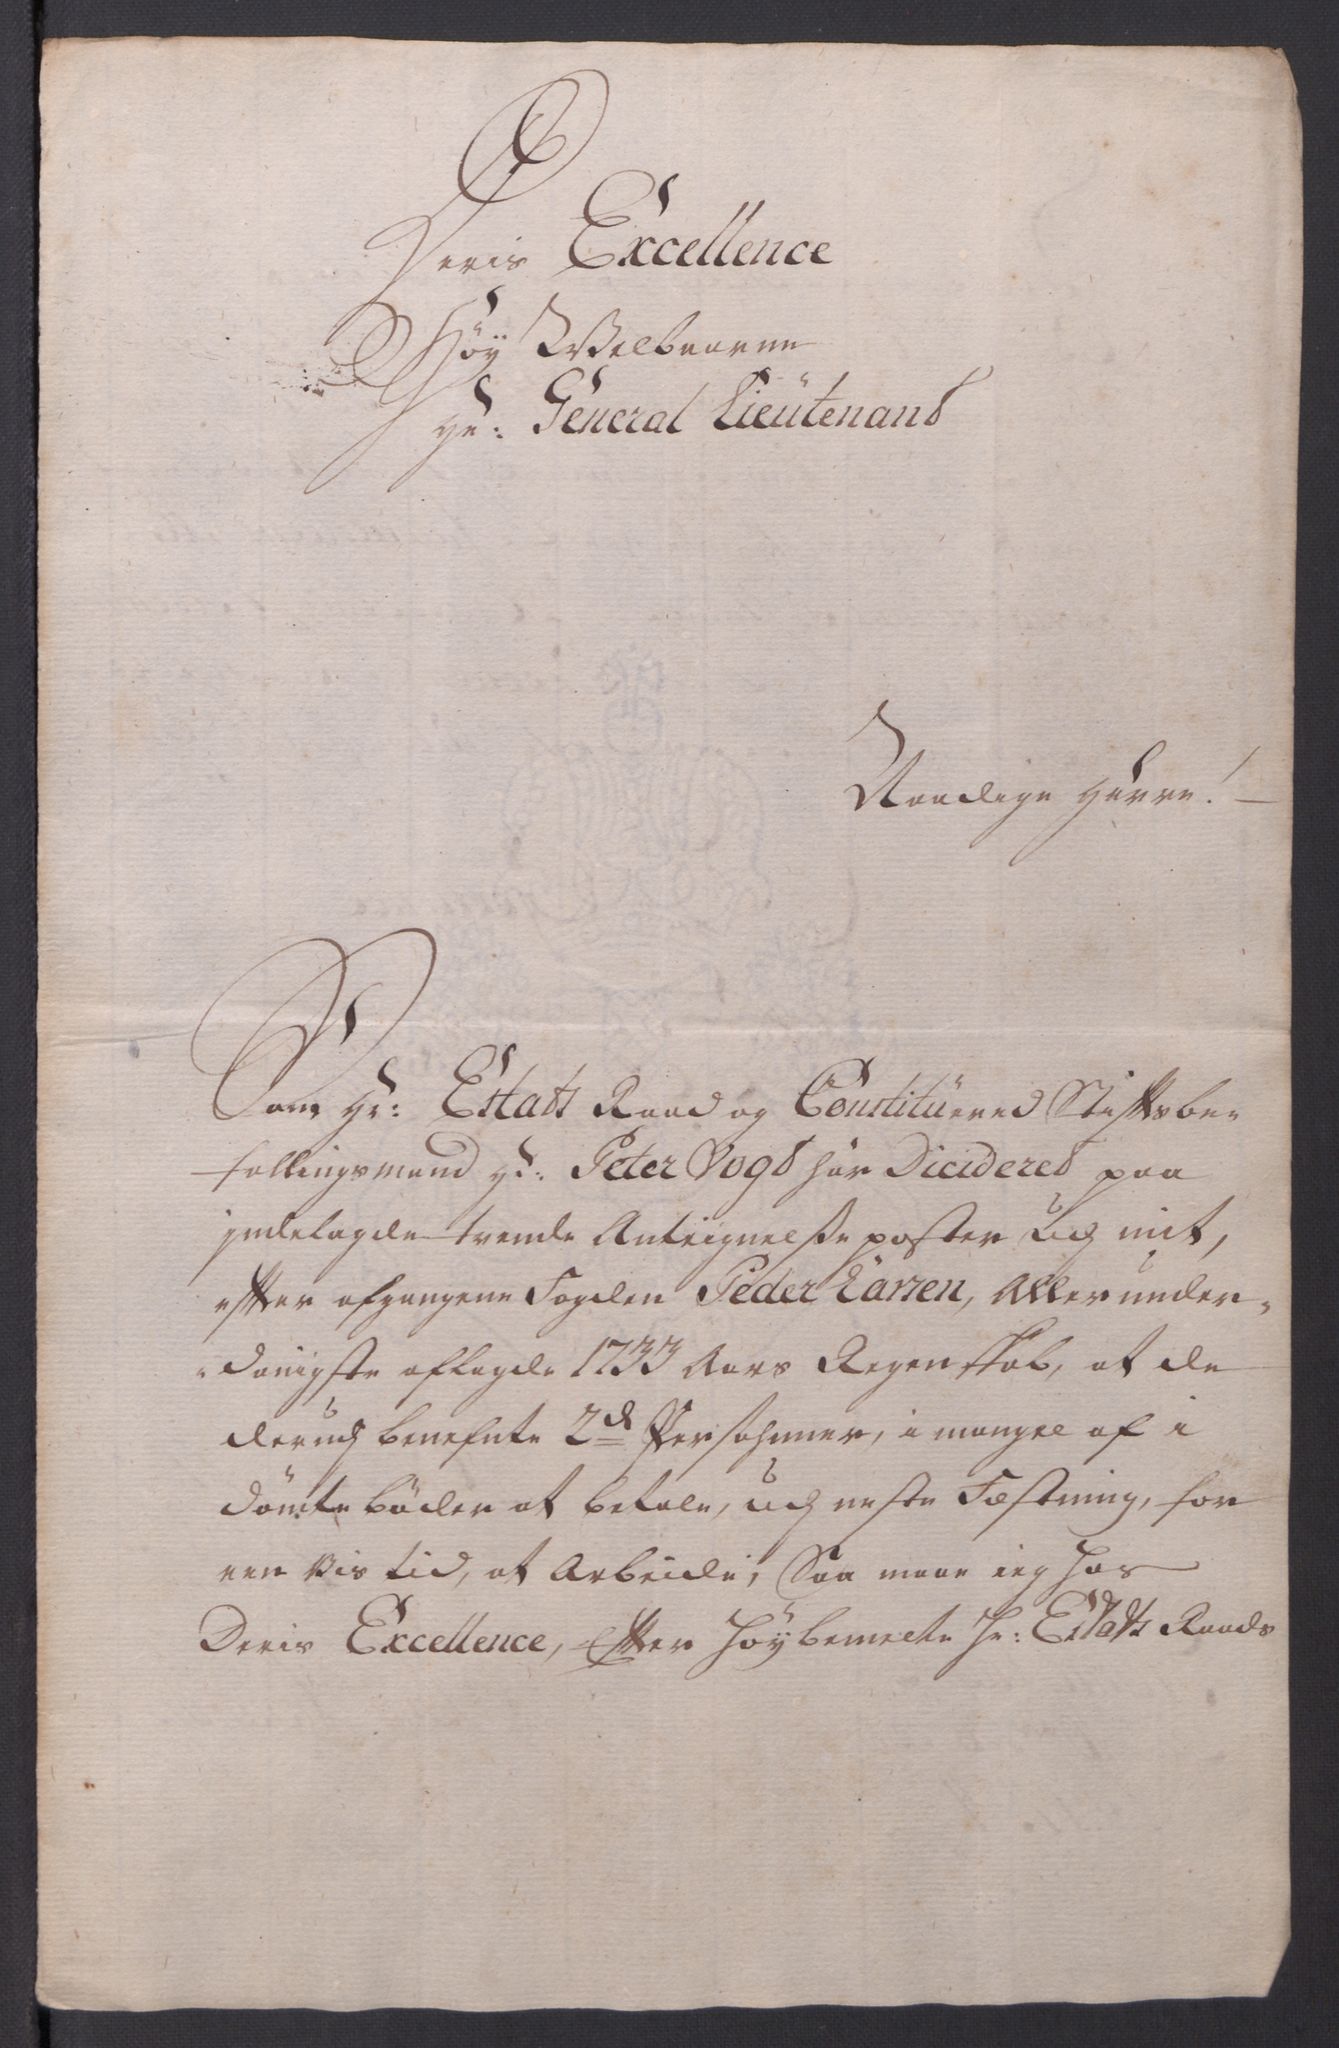 Deris Excellence
Høy Welbaarne
Hr: General Lieütenand
Naadige Herre!
Som Hr: Estats Raad og Constitüered Stiftsbe-
fallingsmand Hr: Peter Vogd har Dicidered paa
jndelagde trende Anteignelse poster udj mit,
efter afgangene Fogden Peder Larsen, Allerunder-
danigste aflagde 1733 Aars Regenskab, at de
derudj benefnte 2de Persohner, i mangel af i
dömte böder at betale, udj neste Festning, for
een vis tid, at Arbeide, Saa maae ieg hos
Deris Excellence, Efter Höybemelte Hr: Estats Raads